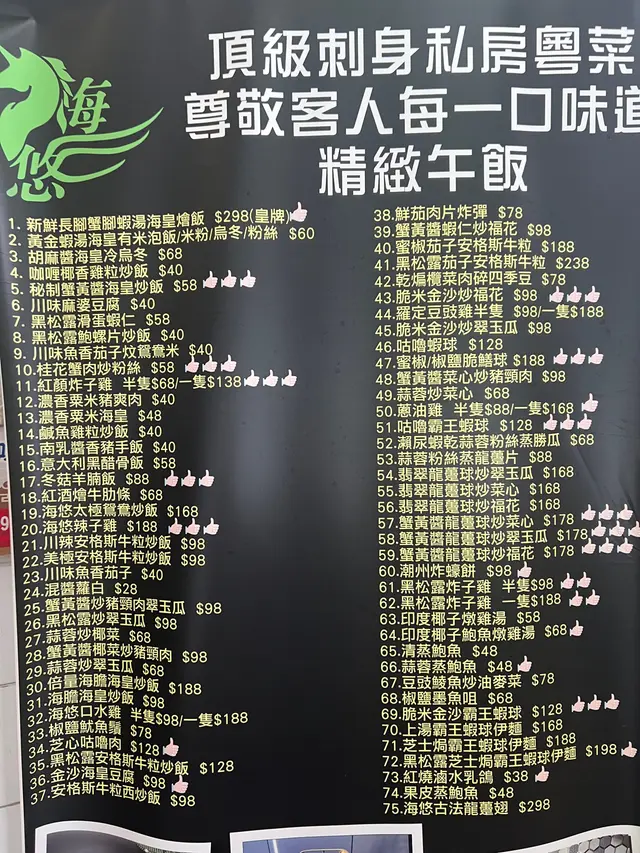 海
悠
頂級刺身私房粵菜
尊敬客人每一口味道
精緻午飯
1. 新鮮長腳蟹腳蝦湯海皇燴飯 $298(皇牌)
2. 黃金蝦湯海皇有米泡飯/米粉/烏冬/粉絲 $60
3. 胡麻醬海皇冷烏冬 $68
4. 咖喱椰香雞粒炒飯 $40
5. 秘制蟹黃醬海皇炒飯 $58
6. 川味麻婆豆腐 $40
7. 黑松露滑蛋蝦仁 $58
8. 黑松露鮑螺片炒飯 $40
9. 川味魚香茄子炆鴛鴦米 $40
10.桂花蟹肉炒粉絲 $58
11.紅顏炸子雞 半隻$68/一隻$138
12.濃香粟米豬爽肉 $40
13.濃香粟米海皇 $48
14.鹹魚雞粒炒飯 $40
15.南乳醬香豬手飯 $40
16.意大利黑醋骨飯 $58
17.冬菇羊腩飯 $88
18.紅酒燴牛肋條 $68
19.海悠太極鴛鴦炒飯 $168
20.海悠辣子雞 $188
21.川辣安格斯牛粒炒飯 $98
22.美極安格斯牛粒炒飯 $98
23.川味魚香茄子 $40
24.混醬蘿白 $28
25.蟹黃醬炒豬頸肉翠玉瓜 $98
26.黑松露炒翠玉瓜 $98
27.蒜蓉炒椰菜 $68
28.蟹黃醬椰菜炒豬頸肉 $98
29.蒜蓉炒翠玉瓜 $68
30.倍量海膽海皇炒飯 $188
31.海膽海皇炒飯 $98
32.海悠口水雞 半隻$98/一隻$188
33.椒鹽魷魚鬚 $78
34.芝心咕嚕肉 $128
35.黑松露安格斯牛粒炒飯 $128
36.金沙海皇豆腐 $98
37.安格斯牛粒西炒飯 $98
38.鮮茄肉片炸彈 $78
39.蟹黃醬蝦仁炒福花 $98
40.蜜椒茄子安格斯牛粒 $188
41.黑松露茄子安格斯牛粒 $238
42.乾煸欖菜肉碎四季豆 $78
43.脆米金沙炒福花 $98
44.羅定豆豉雞半隻 $98/一隻$188
45.脆米金沙炒翠玉瓜 $98
46.咕嚕蝦球 $128
47.蜜椒/椒鹽脆鱔球 $188
48.蟹黃醬菜心炒豬頸肉 $98
49.蒜蓉炒菜心 $68
50.蔥油雞 半隻$88/一隻$168
51.咕嚕霸王蝦球 $128
52.瀨尿蝦乾蒜蓉粉絲蒸勝瓜 $68
53.蒜蓉粉絲蒸龍躉片 $88
54.翡翠龍躉球炒翠玉瓜 $168
55.翡翠龍躉球炒菜心 $168
56.翡翠龍躉球炒福花 $168
57.蟹黃醬龍躉球炒菜心 $178
58.蟹黃醬龍躉球炒翠玉瓜 $178
59.蟹黃醬龍躉球炒福花 $178
60.潮州炸蠔餅 $98
61.黑松露炸子雞 半隻$98
62.黑松露炸子雞 一隻$188
63.印度椰子燉雞湯 $58
64.印度椰子鮑魚燉雞湯 $68
65.清蒸鮑魚 $48
66.蒜蓉蒸鮑魚 $48
67.豆豉鯪魚炒油麥菜 $78
68.椒鹽墨魚咀 $68
69.脆米金沙霸王蝦球 $128
70.上湯霸王蝦球伊麵 $168
71.芝士焗霸王蝦球伊麵 $188
72.黑松露芝士焗霸王蝦球伊麵 $198
73.紅燒滷水乳鴿 $38
74.果皮蒸鮑魚 $48
75.海悠古法龍躉翅 $298